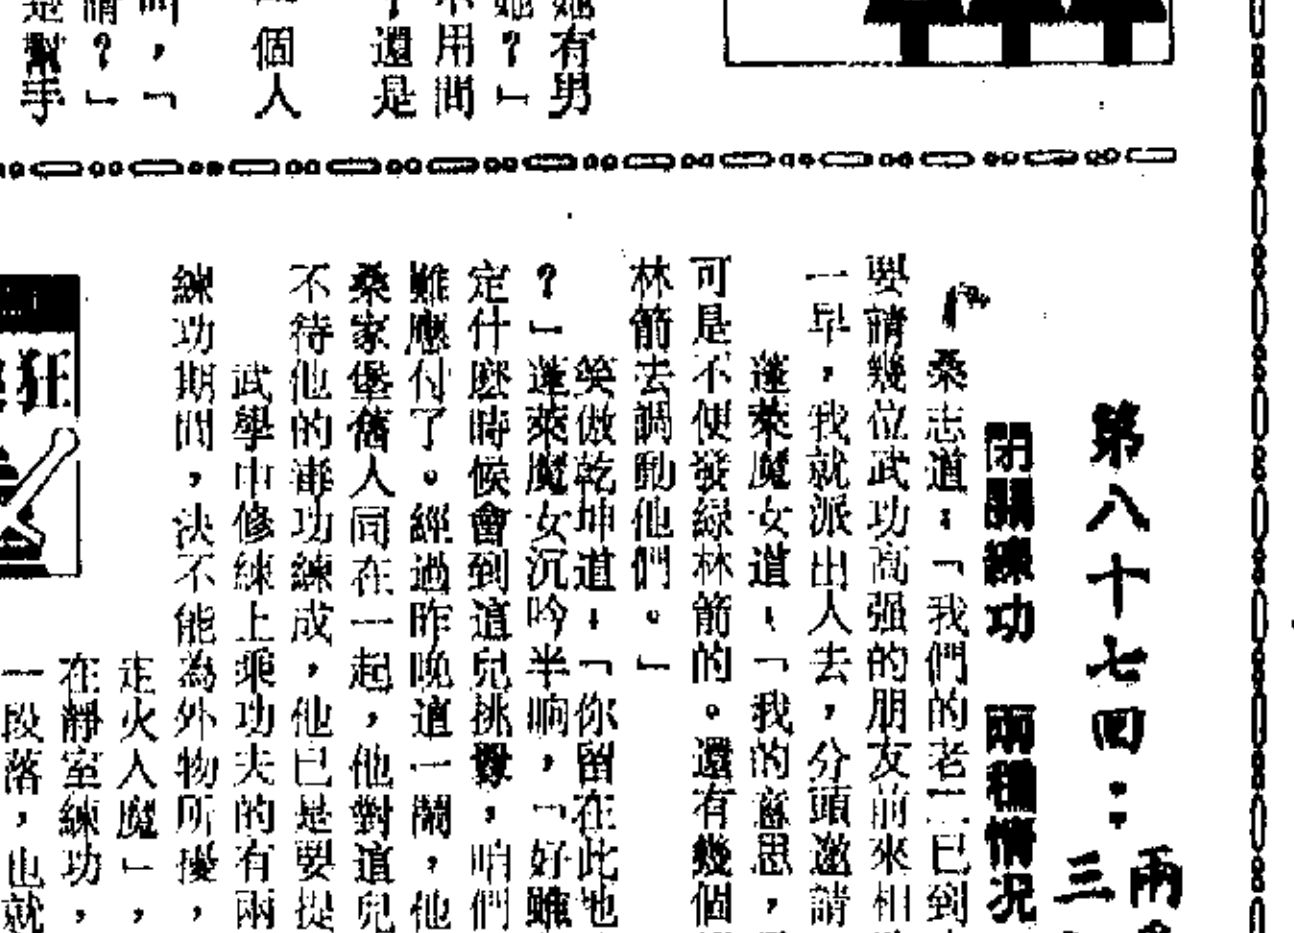 她有男
她？」
不用問
還是
個人
叫，「
請？」
是幫手
第八十七回：
兩
三
閉關練功　兩種情況
桑志道：「我們的老二已到
要請幾位武功高强的朋友前來相
一早，我就派出人去，分頭邀請
蓬萊魔女道：「我的意思，
可是不便發綠林箭的。還有幾個
林箭去調動他們。」
笑傲乾坤道：「你留在此地
？」蓬萊魔女沉吟半晌，「好雖
定什麽時候會到這兒挑釁，咱們
難應付了。經過昨晚這一鬧，他
桑家堡舊人同在一起，他對這兒
不待他的毒功練成，他已是要提
武學中修練上乘功夫的有兩
練功期間，決不能為外物所擾，
走火入魔」，
在靜室練功，
一段落，也就
狂